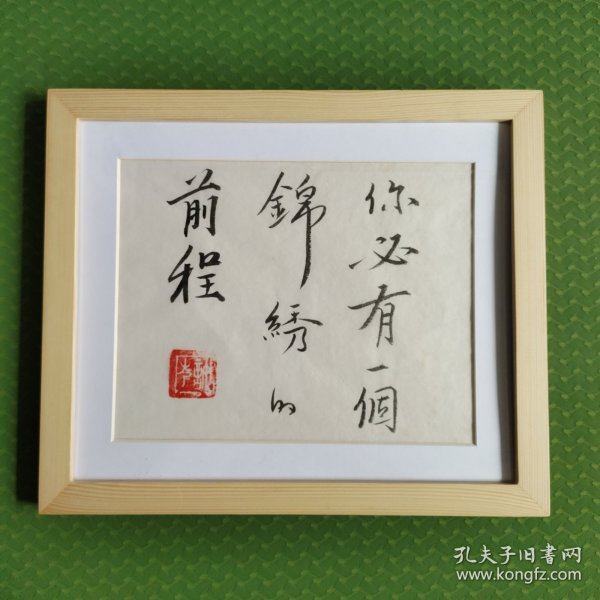 你必有一個
錦繡的
前程
孔夫子旧书网
www.kongfz.com